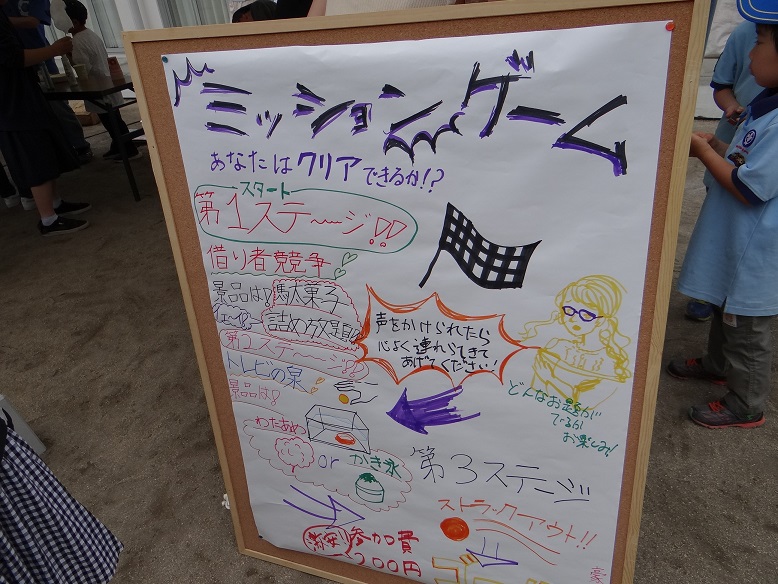 ミッションゲーム
あなたはクリアできるか!?
スタート
第1ステージ!!
借り者競争
景品は!駄菓子
詰め放題!
声をかけられたら
心よく連れられてきて
あげてください!
第2ステージ!!
トレビの泉
景品は!
わたあめ
or かき氷
どんなお題が
でるか
お楽しみ!
第3ステージ
ストラックアウト!!
参加費
200円
ゴール
豪